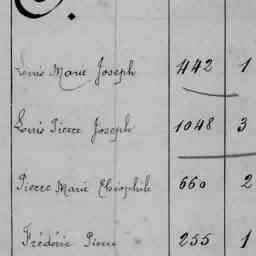 Louis Marie Joseph 442 1
Louis Pierre Joseph 1048 3
Pierre Marie Théophile 660 2
Frédéric Pierre 255 1